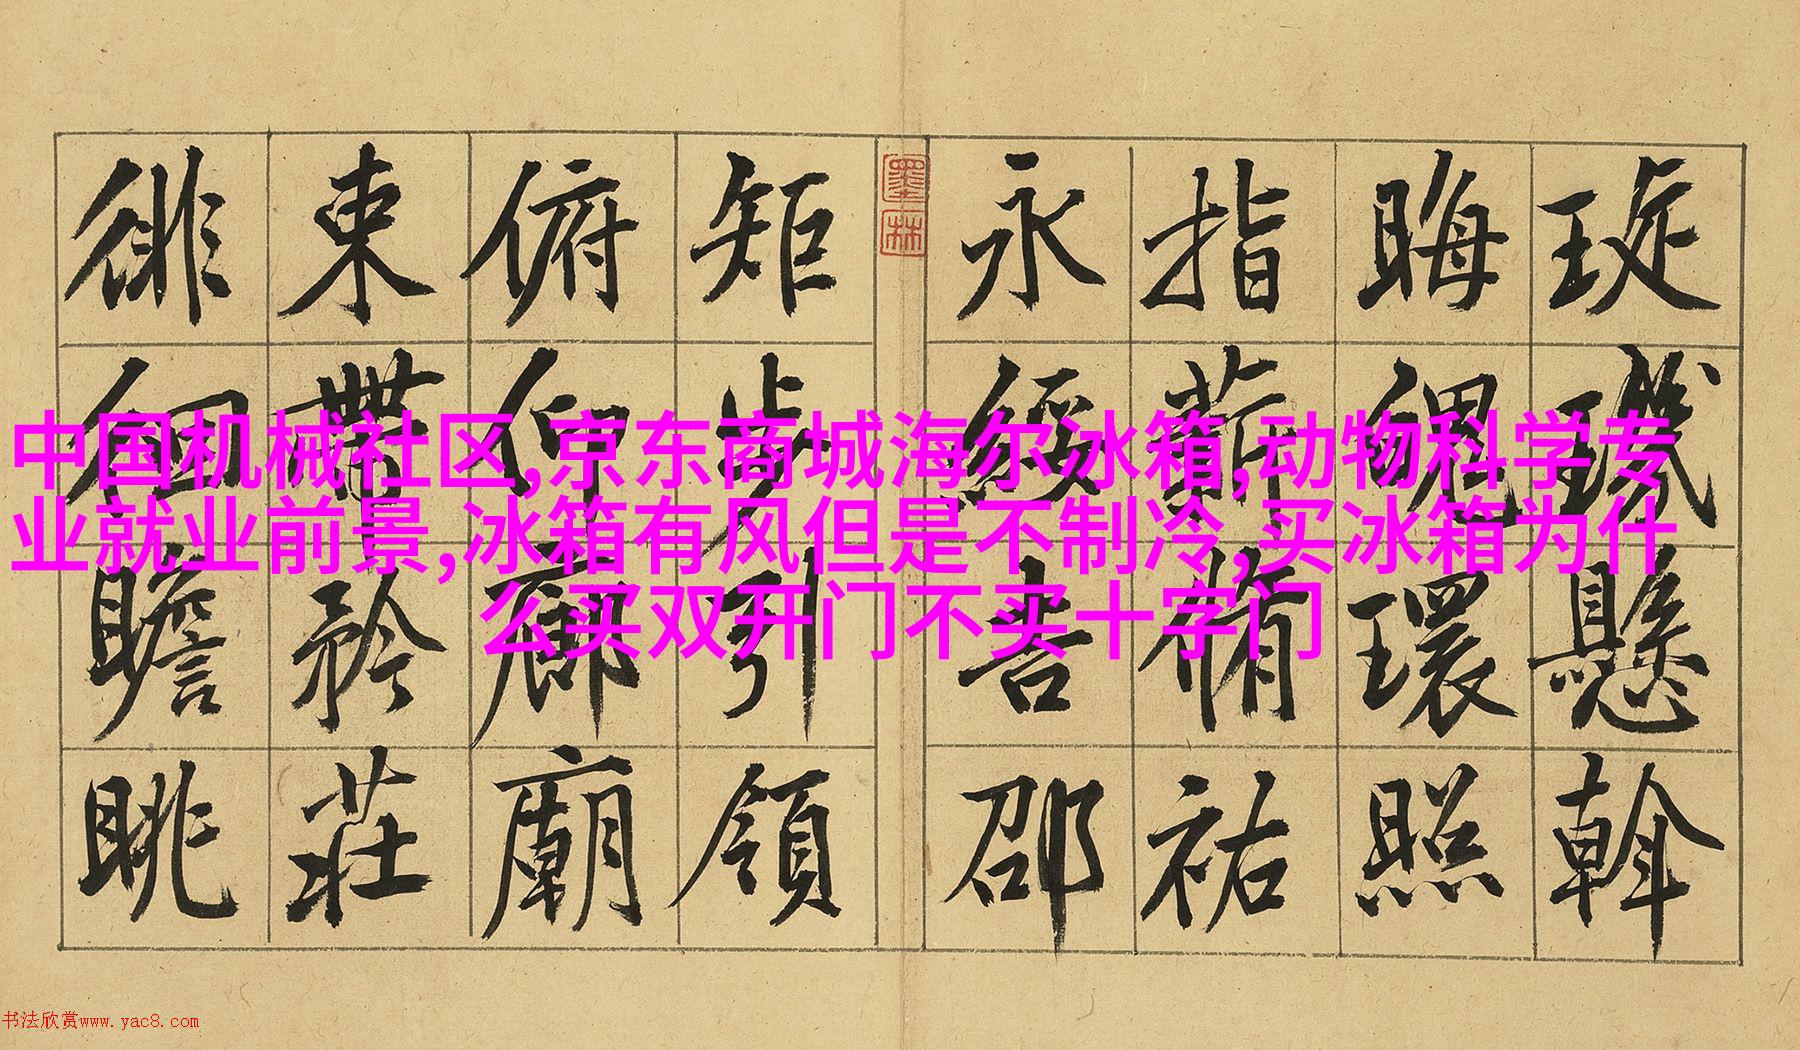 琁璣懸斡
晦魄環照
指薪脩祐
永綏吉邵
墨林
矩步引領
俯仰廊廟
束帶矜莊
徘徊瞻眺
中国机械社区,京东商城海尔冰箱,动物科学专
业就业前景,冰箱有风但是不制冷,买冰箱为什
么买双开门不买十字门
书法欣赏www.yac8.com